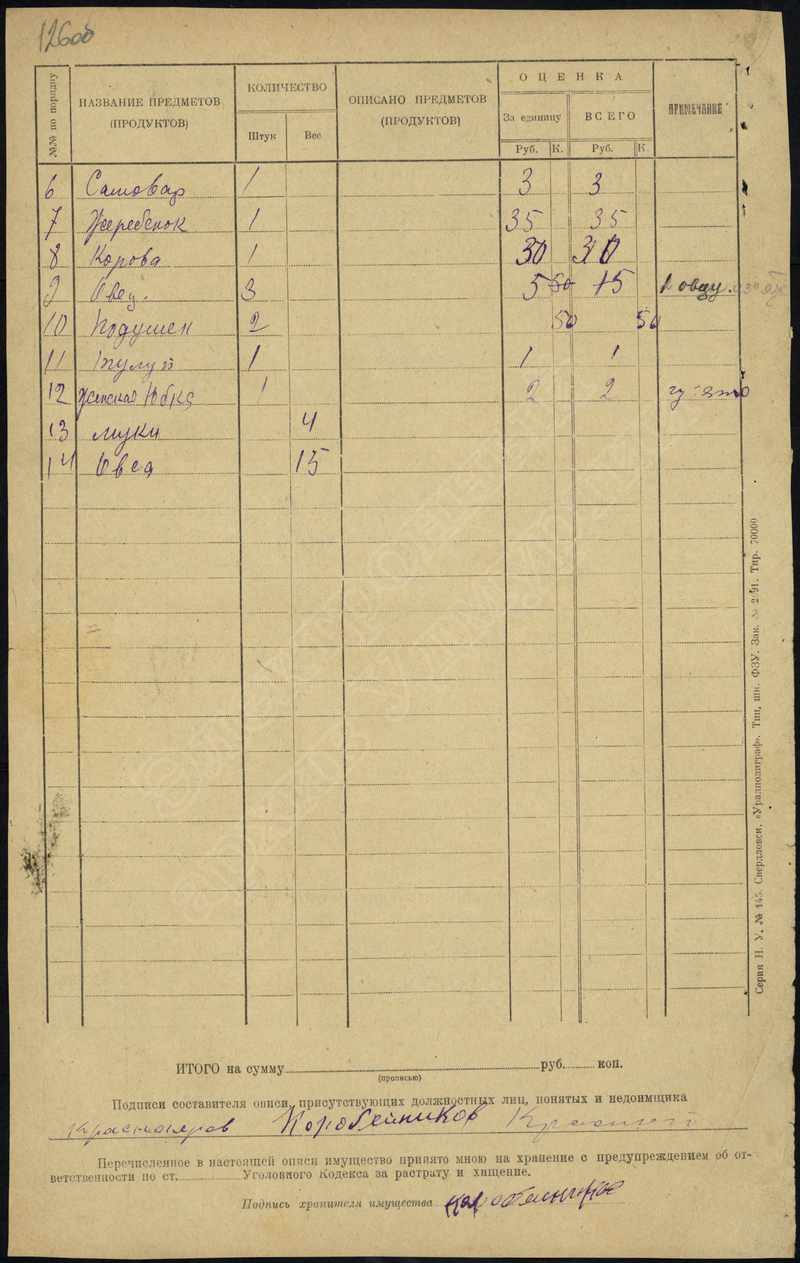 126об
№№ по порядку
НАЗВАНИЕ ПРЕДМЕТОВ (ПРОДУКТОВ)
КОЛИЧЕСТВО
Штук Вес
ОПИСАНО ПРЕДМЕТОВ (ПРОДУКТОВ)
ОЦЕНКА
За единицу ВСЕГО
Руб. К. Руб. К.
ПРИМЕЧАНИЕ
6 Самовар 1 3 3
7 Жеребенок 1 35 35
8 Корова 1 30 30
9 Овец. 3 5 50 15 1 овцу.
10 Подушек 2 50 50
11 Тулуп 1 1 1
12 Женская Юбка 1 2 2
13 муки 4
14 Овса 15
ИТОГО на сумму руб. коп.
(прописью)
Подписи составителя описи, присутствующих должностных лиц, понятых и недоимщика
Коробейников
Перечисленное в настоящей описи имущество принято мною на хранение с предупреждением об от-
ветственности по ст. Уголовного Кодекса за растрату и хищение.
Подпись хранителя имущества
Серия Н. У. № 145. Свердловск, «Уралполиграф». Тип. шк. ФЗУ. Зак. № Тир. 70000